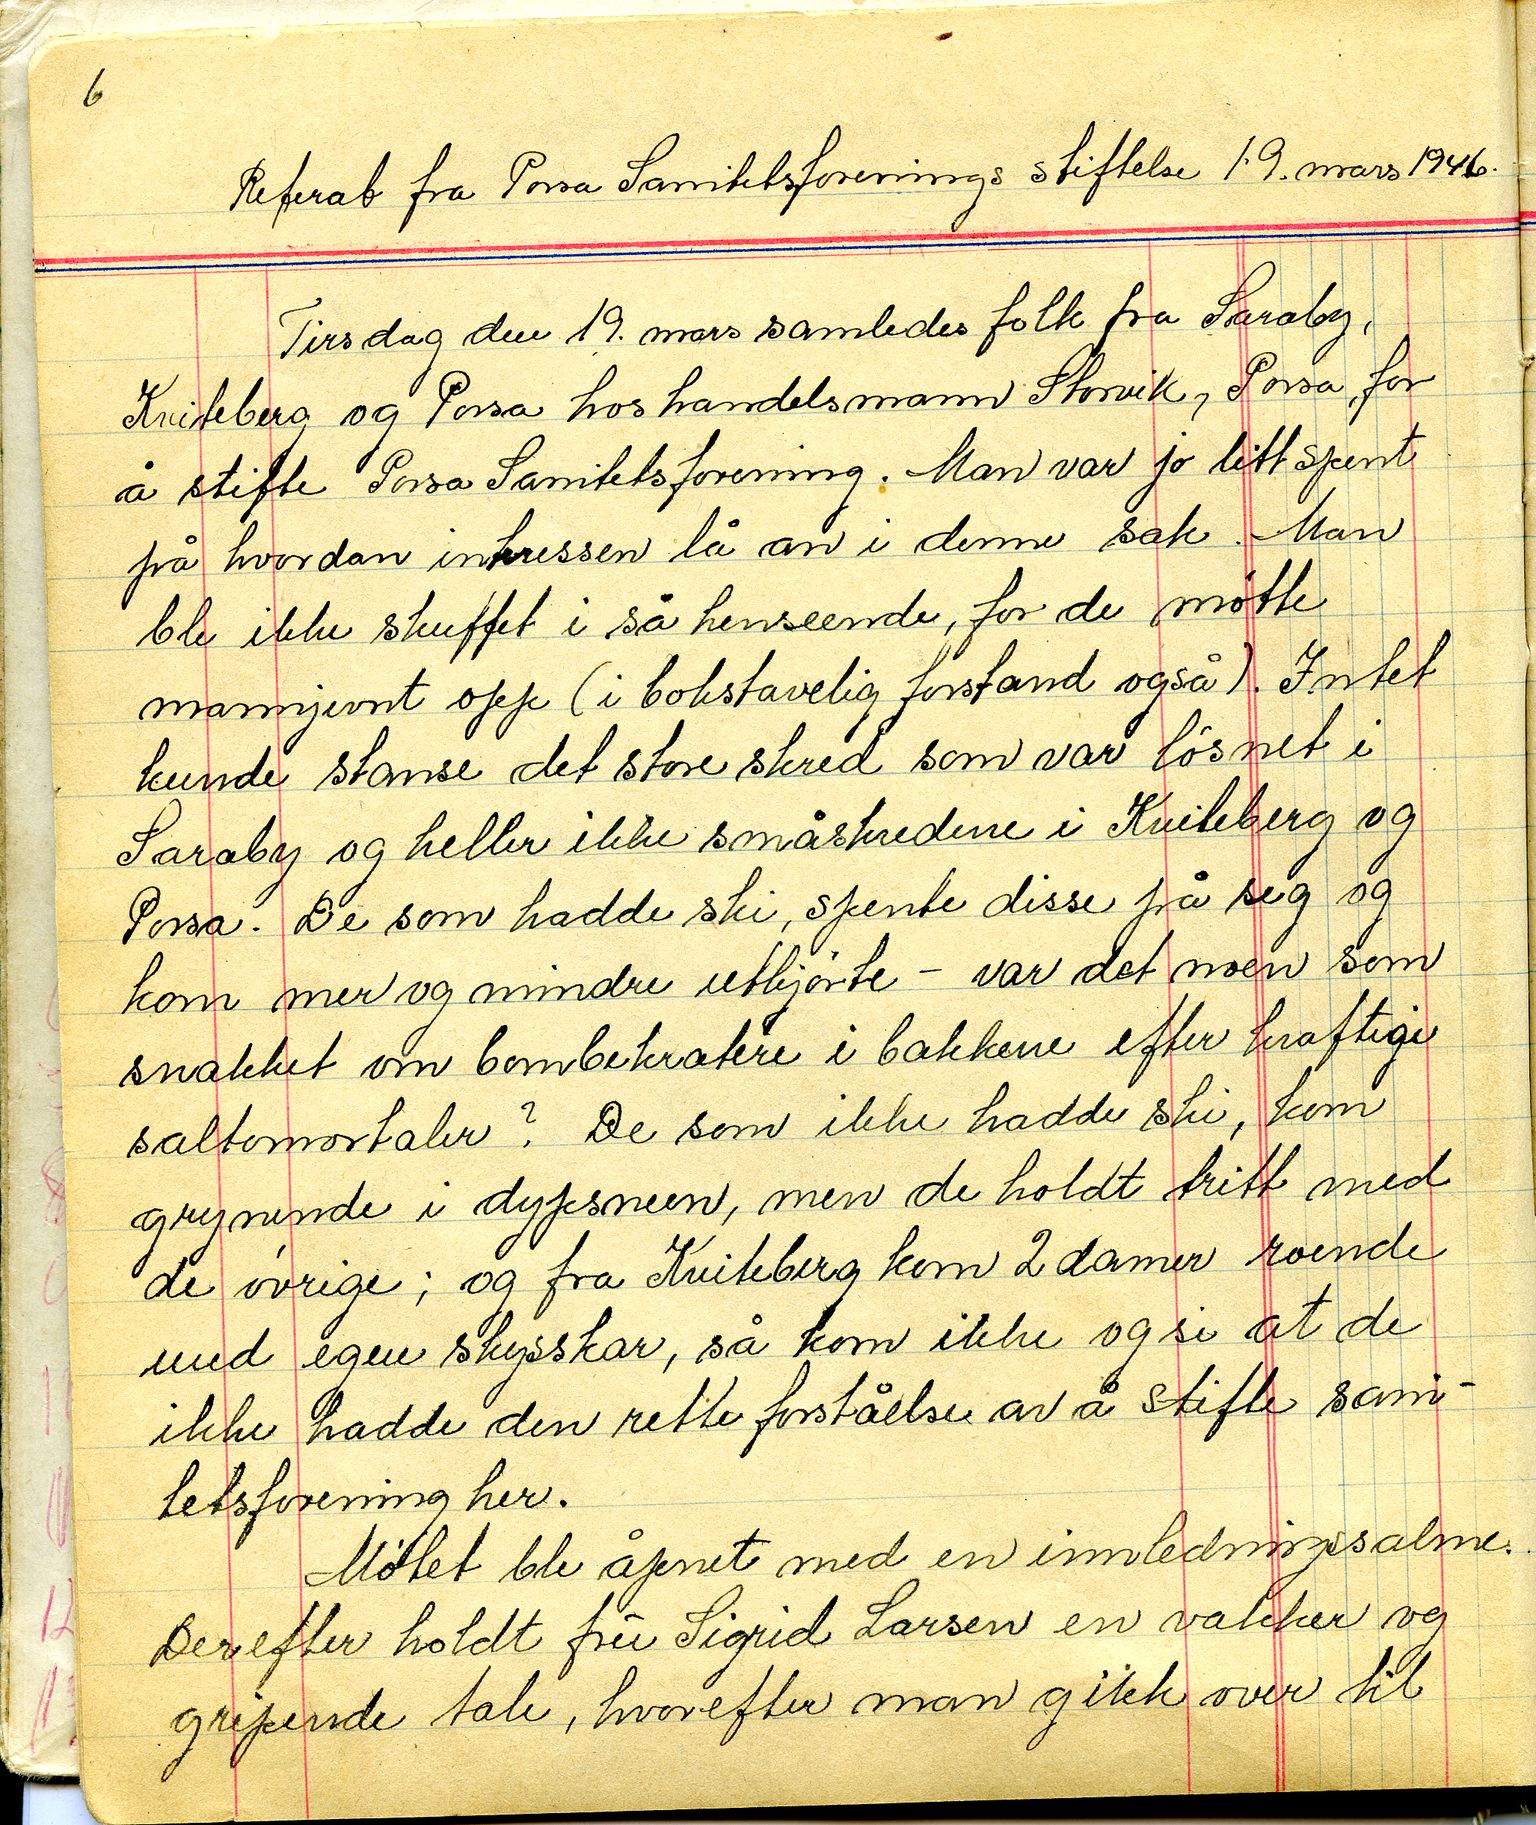 6
Referat fra Porsa Sanitetsforenings stiftelse 19. mars 1946.
Tirsdag den 19. mars samledes folk fra Saraby,
Kviteberg og Porsa hos handelsmann Storvik, Porsa, for
å stifte Porsa Sanitetsforening. Man var jo litt spent
på hvordan interessen lå an i denne sak. Man
ble ikke skuffet i så henseende, for de møtte
mannjevnt opp (i bokstavelig forstand også). Intet
kunde stanse det store skred som var løsnet i
Saraby og heller ikke småskredene i Kviteberg og
Porsa. De som hadde ski, spente disse på seg og
kom mer og mindre utkjørte - var det noen som
snakket om bombekratere i bakkene efter kraftige
saltomortaler? De som ikke hadde ski, kom
grynende i dypsneen, men de holdt tritt med
de øvrige; og fra Kviteberg kom 2 damer roende
med egen skysskar, så kom ikke og si at de
ikke hadde den rette forståelse av å stifte sani-
tetsforening her.
Møtet ble åpnet med en innledningssalme.
Derefter holdt frü Sigrid Larsen en vakker og
gripende tale, hvorefter man gikk over til